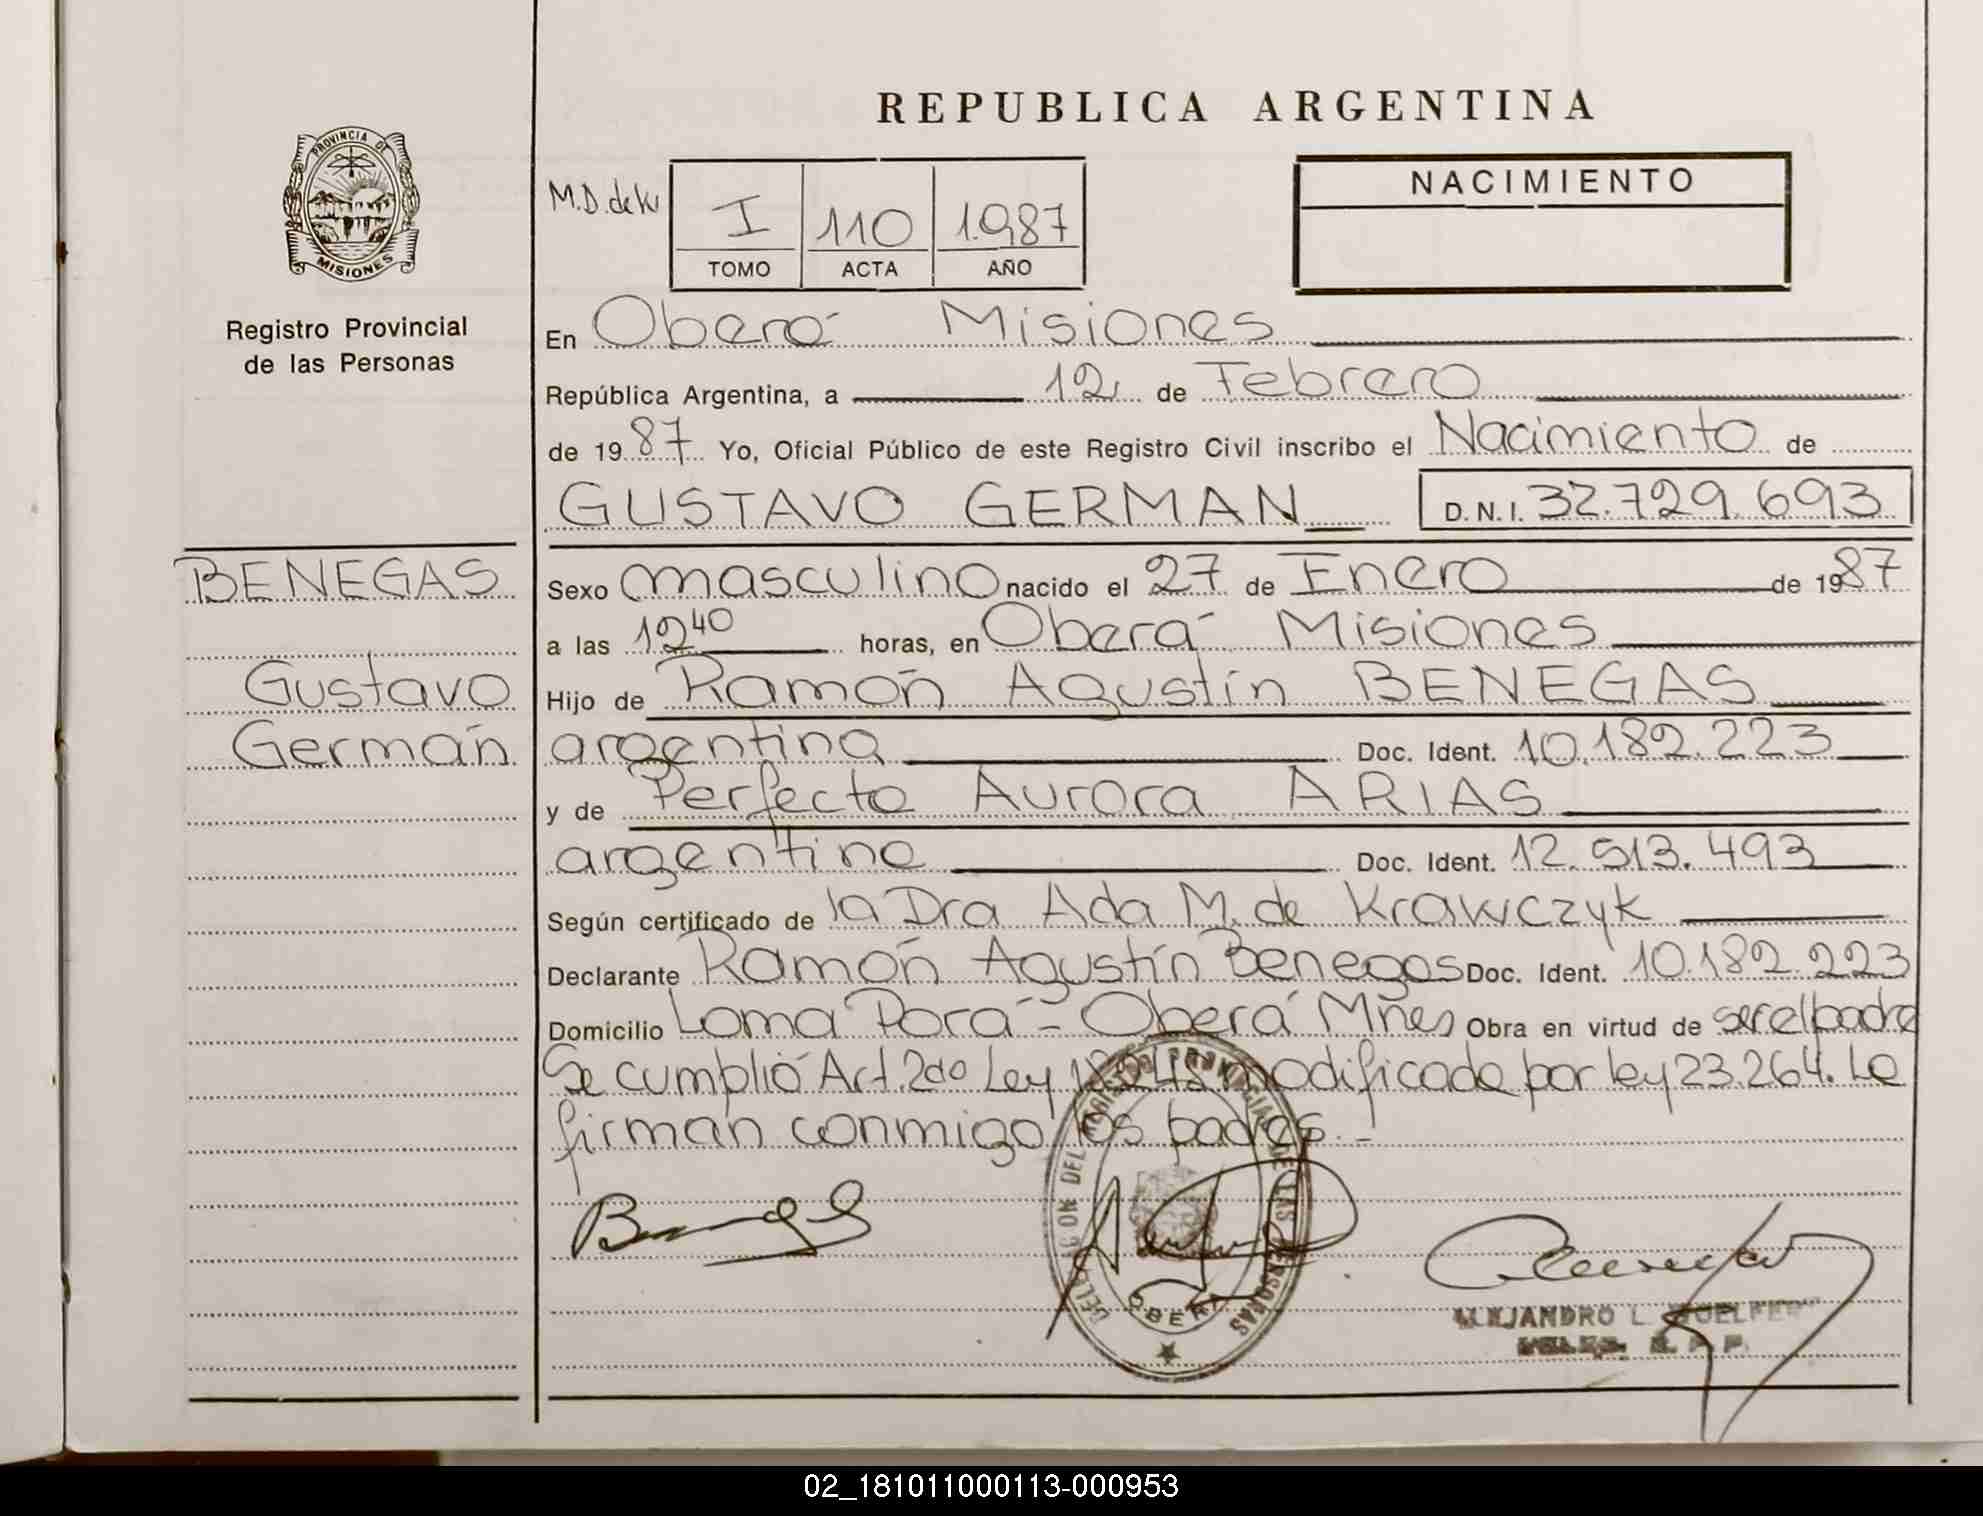 REPUBLICA ARGENTINA
PROVINCIA DE
MISIONES
Registro Provincial
de las Personas
M.D. de Kr
I 110 1.987
TOMO ACTA AÑO
NACIMIENTO
En Oberá Misiones
República Argentina, a 12 de Febrero
de 1987 Yo, Oficial Público de este Registro Civil inscribo el Nacimiento de
GUSTAVO GERMAN D.N.I. 32.729.693
BENEGAS
Gustavo
Germán
Sexo masculino nacido el 27 de Enero de 1987
a las 12 40 horas, en Oberá Misiones
Hijo de Ramón Agustín BENEGAS
argentina Doc. Ident. 10.182.223
y de Perfecta Aurora ARIAS
argentina Doc. Ident. 12.513.493
Según certificado de la Dra Ada M. de Krawczyk
Declarante Ramón Agustín Benegas Doc. Ident. 10.182.223
Domicilio Loma Porá - Oberá Mñes Obra en virtud de ser el padre
Se cumplió Art. 2do Ley modificada por ley 23.264. La
firman conmigo los padres.-
DELEGACION DEL REGISTRO PROVINCIAL DE LAS PERSONAS
OBERA
ALEJANDRO L.
02_181011000113-000953